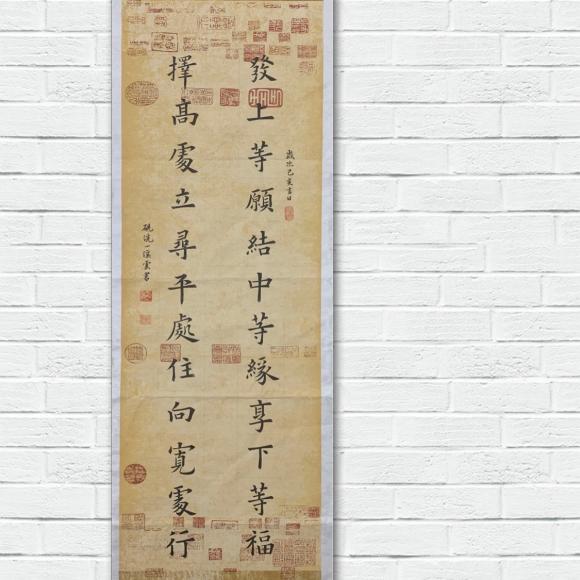 歲次己亥吉日
發上等願結中等緣享下等福
擇高處立尋平處住向寬處行
硯洗一溪雲書